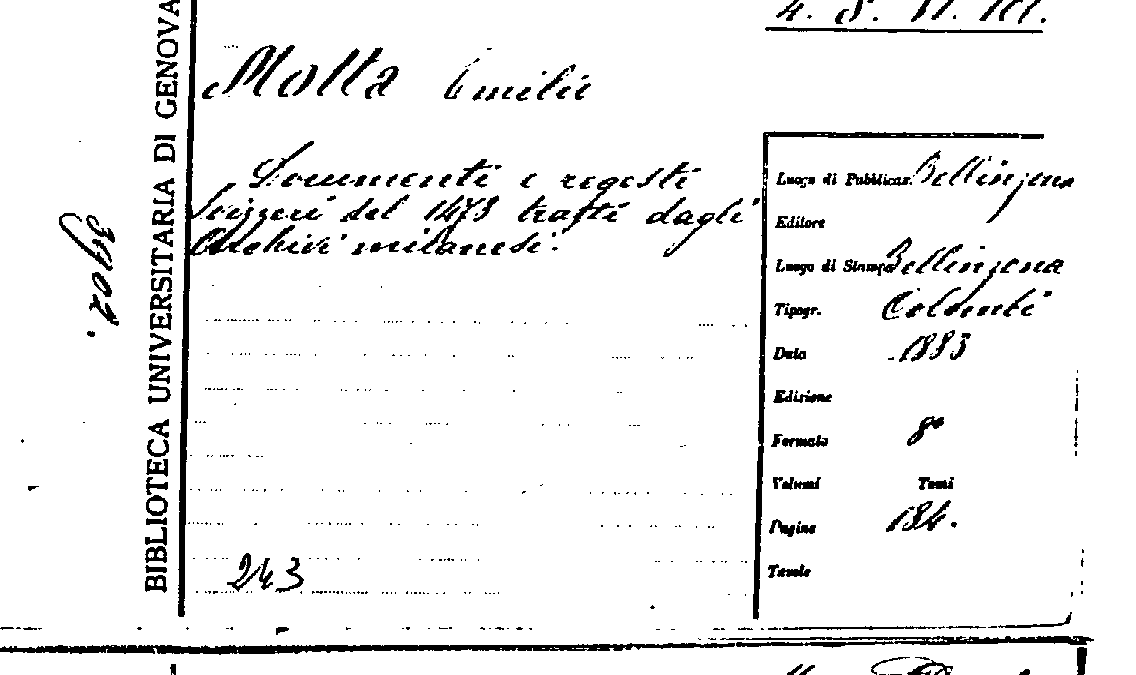 4. S. VI. 101.
BIBLIOTECA UNIVERSITARIA DI GENOVA
3902.
Motta Emilio
Documenti e regesti
svizzeri del 1478 tratti dagli
Archivi milanesi.
243
Luogo di Pubblicaz. Bellinzona
Editore
Luogo di Stampa Bellinzona
Tipogr. Colombi
Data 1883
Edizione
Formato 8º
Volumi Tomi
Pagine 184.
Tavole